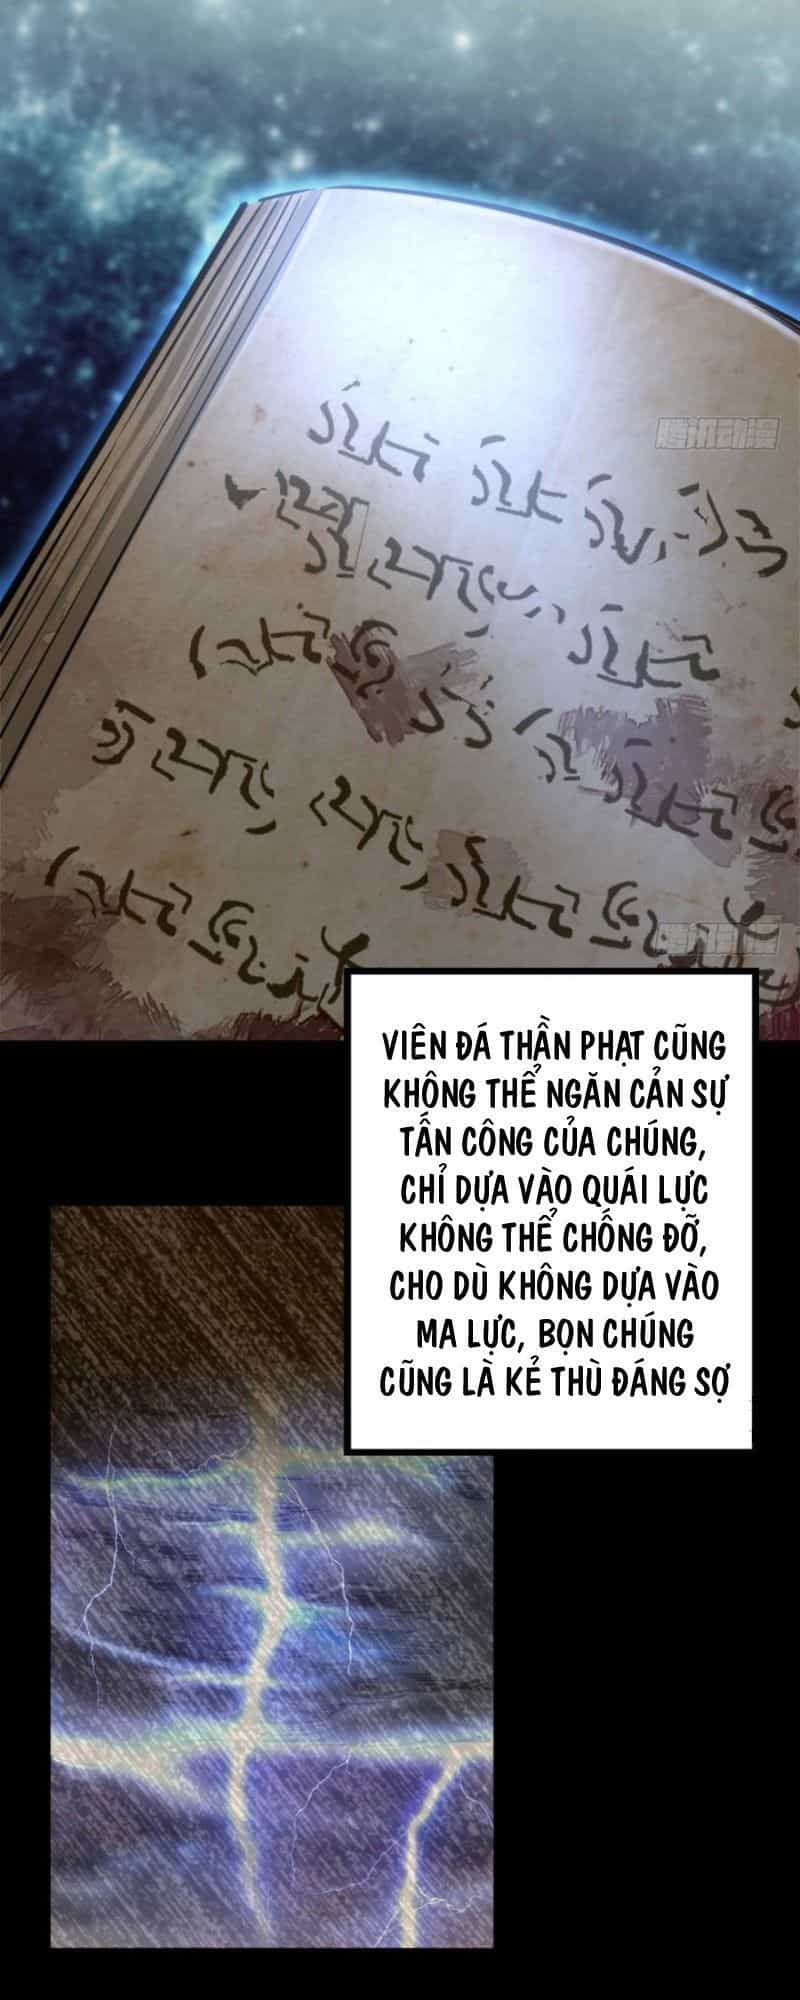 腾讯动漫
VIÊN ĐÁ THẦN PHẠT CŨNG
KHÔNG THỂ NGĂN CẢN SỰ
TẤN CÔNG CỦA CHÚNG,
CHỈ DỰA VÀO QUÁI LỰC
KHÔNG THỂ CHỐNG ĐỠ,
CHO DÙ KHÔNG DỰA VÀO
MA LỰC, BỌN CHÚNG
CŨNG LÀ KẺ THÙ ĐÁNG SỢ